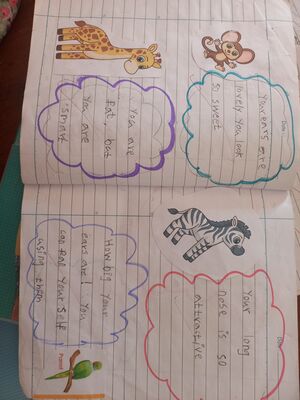 Date:
Your ears are
lovely you look
so sweet
You are
fat, but
You are
smart
Your long
nose is so
attractive
How big your
ears are! You
can fan your Self
using them